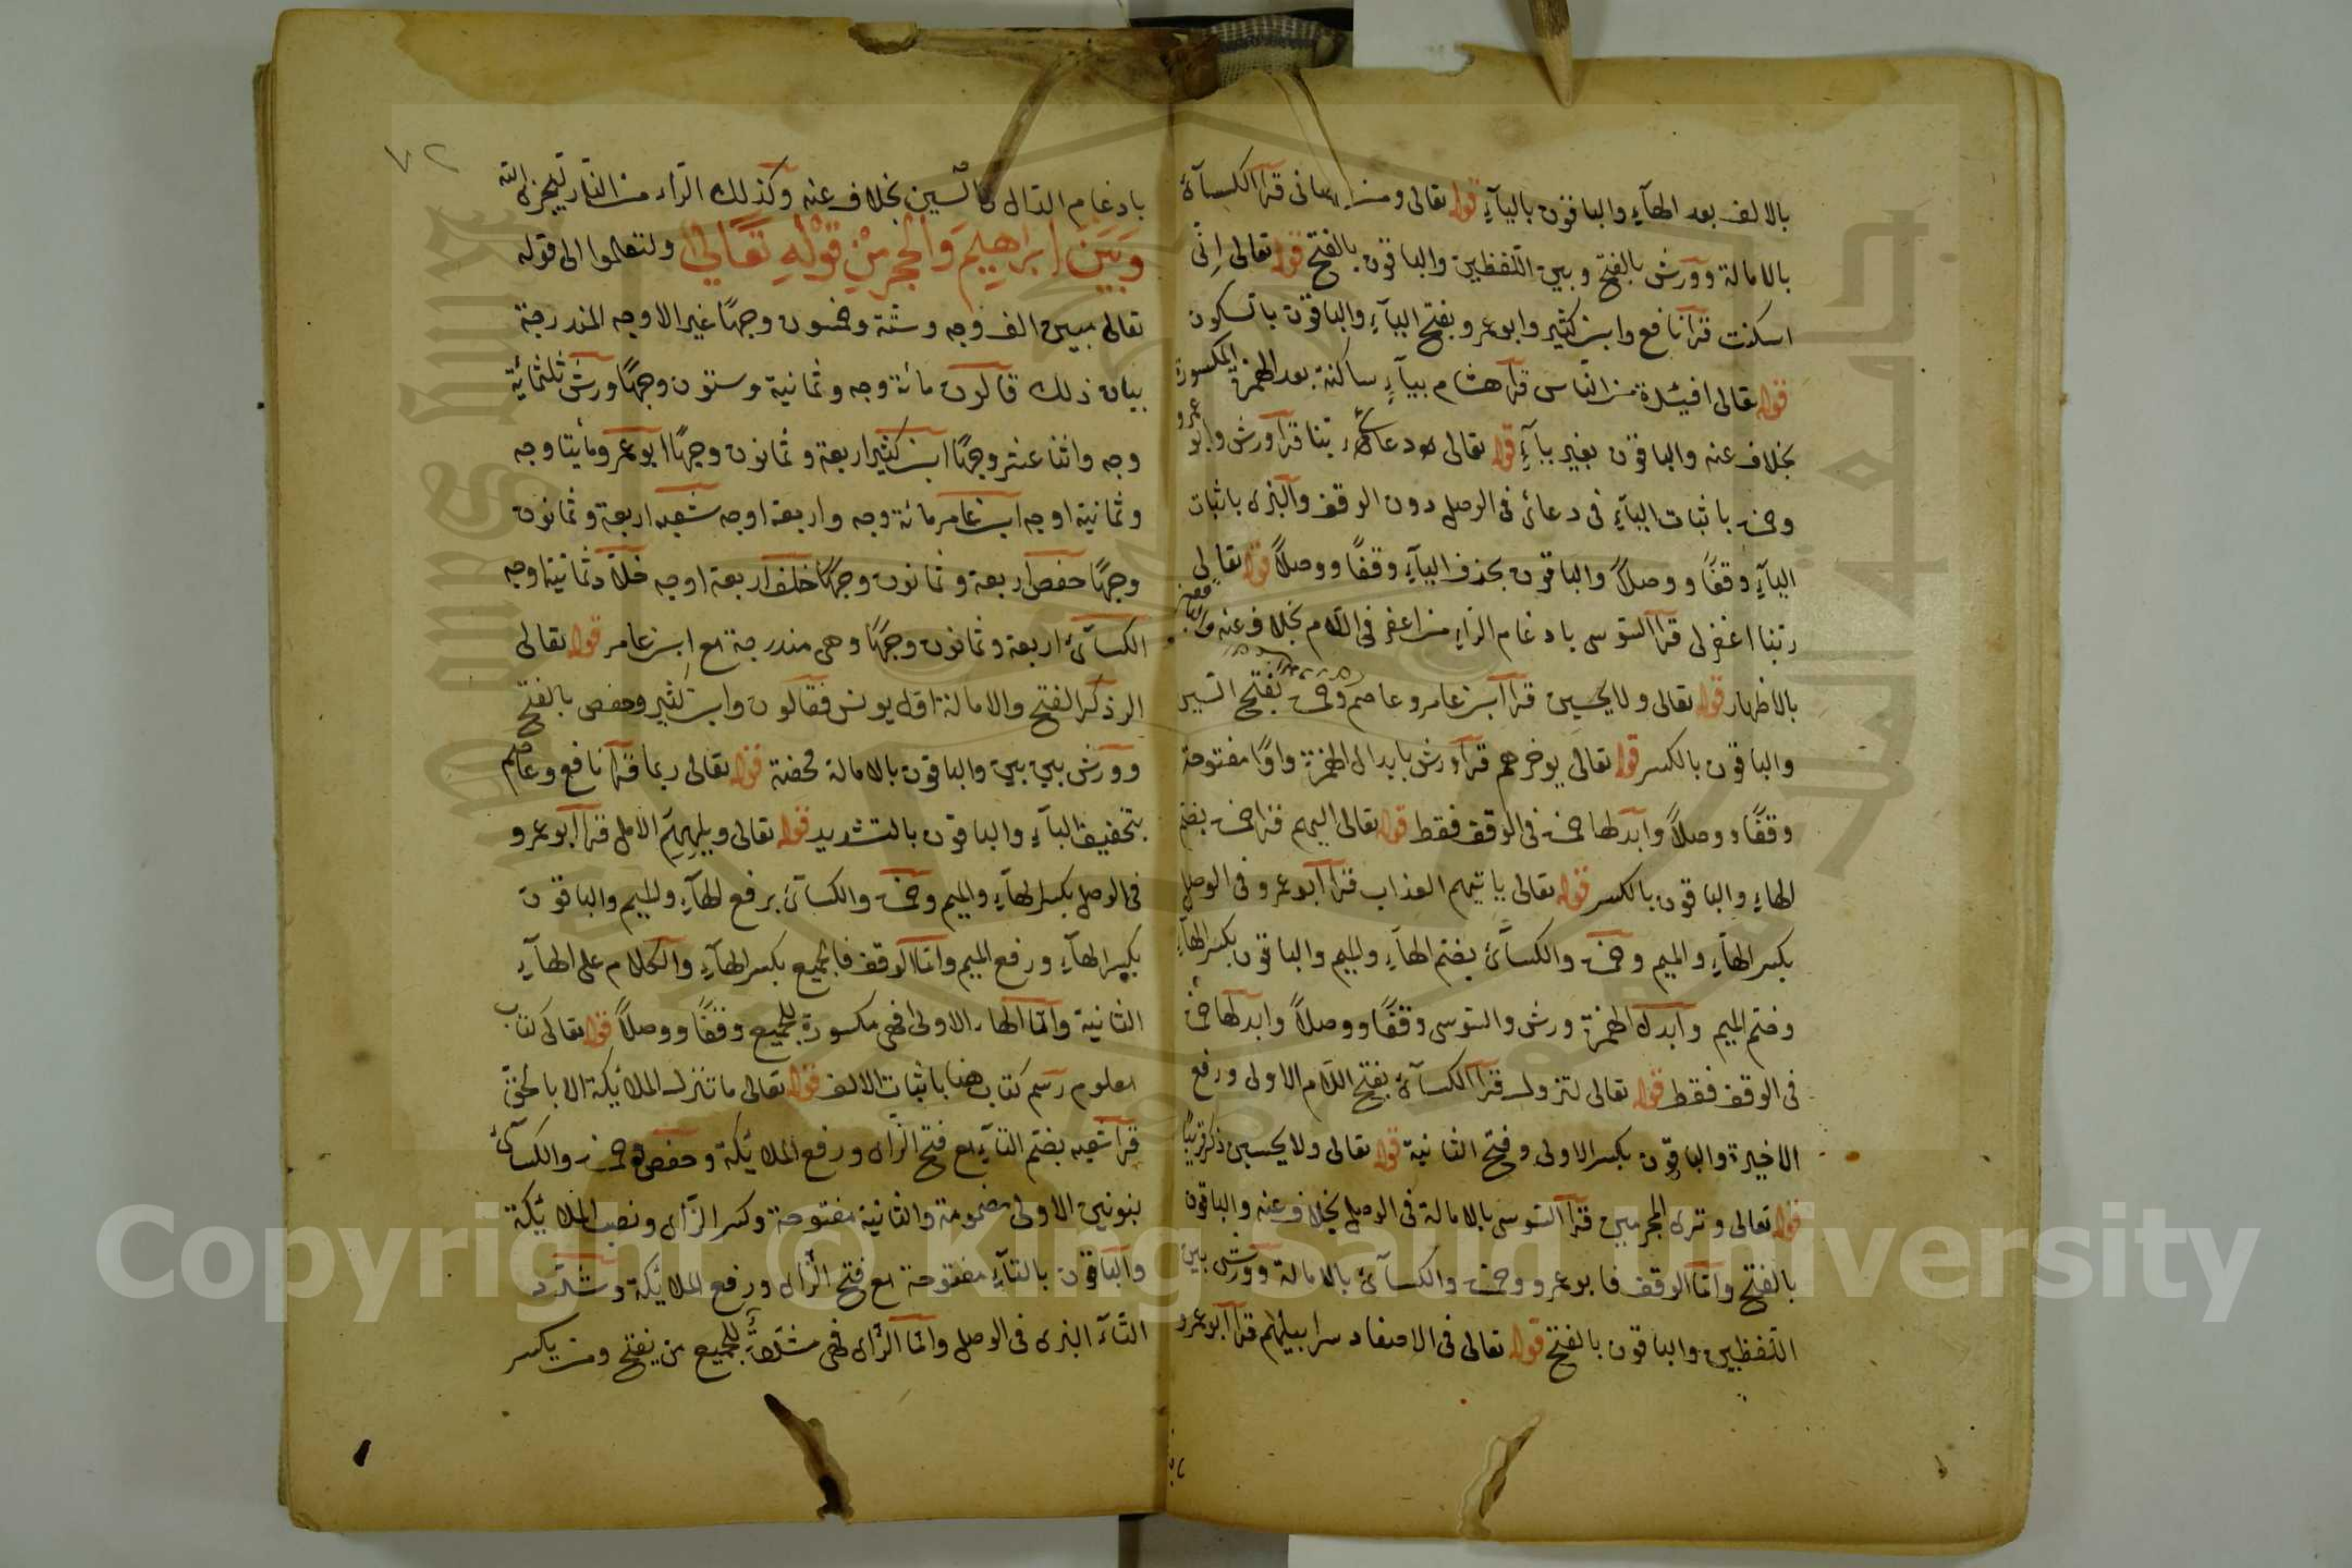 بالالف بعد الهآء والباقون باليآء قوله تعالى ومن عصانى قرا الكسآئ
بالامالة وورش بالفتح وبين اللفظين والباقون بالفتح قوله تعالى انى
اسكنت قرا نافع وابن كثير وابو عمرو بفتح اليآء والباقون باسكون
قوله تعالى افئدة من الناس قرا هشام بيآء ساكنة بعد الهمزة المكسورة
بخلاف عنه والباقون بغير يآء قوله تعالى دعائ ربنا قرا ورش وابو عمرو
وحمزة باثبات اليآء فى دعائ فى الوصل دون الوقف والبزى باثبات
اليآء وقفًا ووصلاً والباقون بحذف اليآء وقفًا ووصلاً قوله تعالى
ربنا اغفر لى قرا السوسى بادغام الراء من اغفر فى اللام بخلاف عنه والباقون
بالاظهار قوله تعالى ولا تحسبن قرا ابن عامر وعاصم وحمزة بفتح السين
والباقون بالكسر قوله تعالى يوخرهم قرا ورش بابدال الهمزة واوًا مفتوحة
وقفًا ووصلاً وابدلها حمزة فى الوقف فقط قوله تعالى اليهم قرا حمزة بضم
الهاء والباقون بالكسر قوله تعالى ياتيهم العذاب قرا ابو عمرو فى الوصل
بكسر الهآء والميم وحمزة والكسآئ بضم الهآء والميم والباقون بكسر الهآء
وضم الميم وابدل الهمزة ورش والسوسى وقفًا ووصلاً وابدلها حمزة
فى الوقف فقط قوله تعالى لتزول قرا الكسآئ بفتح اللام الاولى ورفع
الاخيرة والباقون بكسر الاولى وفتح الثانية قوله تعالى ولا تحسبن ذكر قريبًا
قوله تعالى وترى المجرمين قرا السوسى بالامالة فى الوصل بخلاف عنه والباقون
بالفتح واما الوقف فابو عمرو وحمزة والكسآئ بالامالة وورش بين
اللفظين والباقون بالفتح قوله تعالى فى الاصفاد سرابيلهم قرا ابو عمرو
٧٢
بادغام الدال فى السين بخلاف عنه وكذلك الراء من النار ليجزى الله
وبين ابراهيم والحجر من قوله تعالى ولتعلموا الى قوله
تعالى مبين الف وجه وستة وخمسون وجهًا غير الاوجه المندرجة
بيان ذلك قالون مائة وجه وثمانية وستون وجهًا ورش ثلثمائة
وجه واثنا عشر وجهًا ابن كثير اربعة وثمانون وجهًا ابو عمرو مأيتا وجه
وثمانية اوجه ابن عامر مائة وجه واربعة اوجه شعبه اربعة وثمانون
وجهًا حفص اربعة وثمانون وجهًا خلف اربعة اوجه خلاد ثمانية اوجه
الكسآئ اربعة وثمانون وجهًا وهى مندرجة مع ابن عامر قوله تعالى
الر ذكر الفتح والامالة اول يونس فقالون وابن كثير وحفص بالفتح
وورش بين بين والباقون بالامالة محضة قوله تعالى ربما قرا نافع وعاصم
بتخفيف البآء والباقون بالتشديد قوله تعالى ويلههم الامل قرا ابو عمرو
فى الوصل بكسر الهآء والميم وحمزة والكسآئ برفع الهآء والميم والباقون
بكسر الهآء ورفع الميم واما الوقف فالجميع بكسر الهآء والكلام على الهآء
الثانية واما الهاء الاولى فهى مكسورة للجميع وقفًا ووصلاً قوله تعالى كتاب
معلوم رسم كتاب هنا باثبات الالف قوله تعالى ما تنزل الملائكة الا بالحق
قرا شعبه بضم التآء مع فتح الزاى ورفع الملائكة وحفص وحمزة والكسآئ
بنونين الاولى مضمومة والثانية مفتوحة وكسر الزاى ونصب الملائكة
والباقون بالتآء مفتوحة مع فتح الزاى ورفع الملائكة وشدد
التآء البزى فى الوصل واما الزاى فهى مشددة للجميع من يفتح ومن يكسر
Copyright © King Saud University